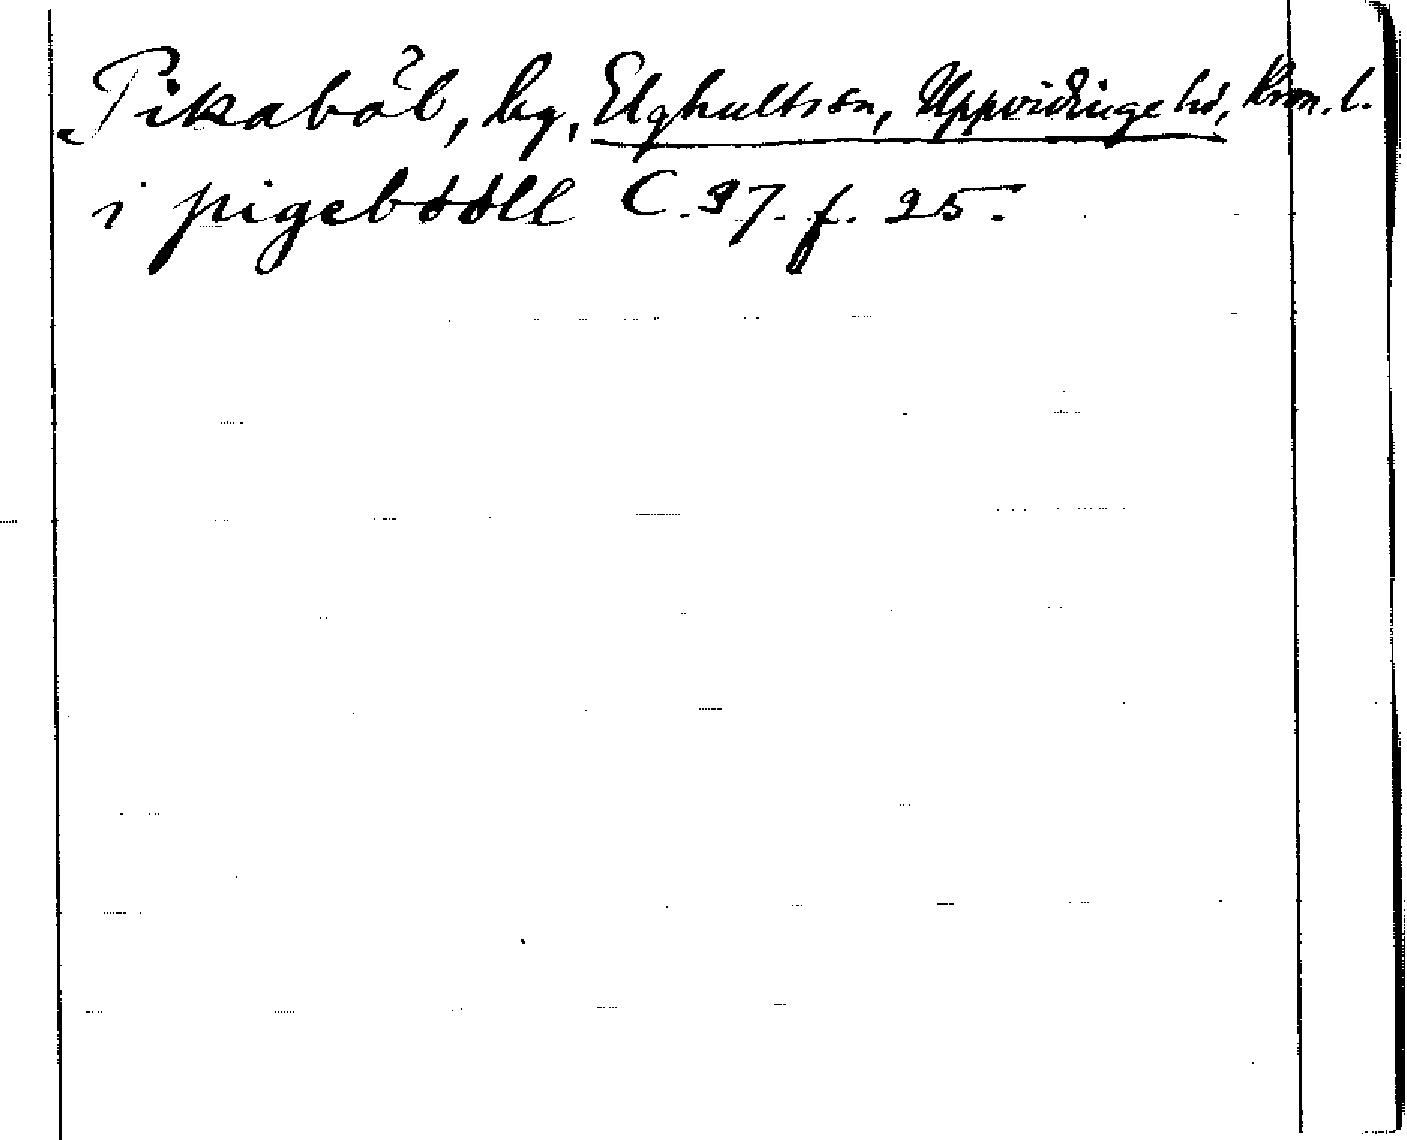 Pikaböl, by, Elghults sn, Uppvidinge hd, Kron. l.
i pigebööll C. 37. f. 25.